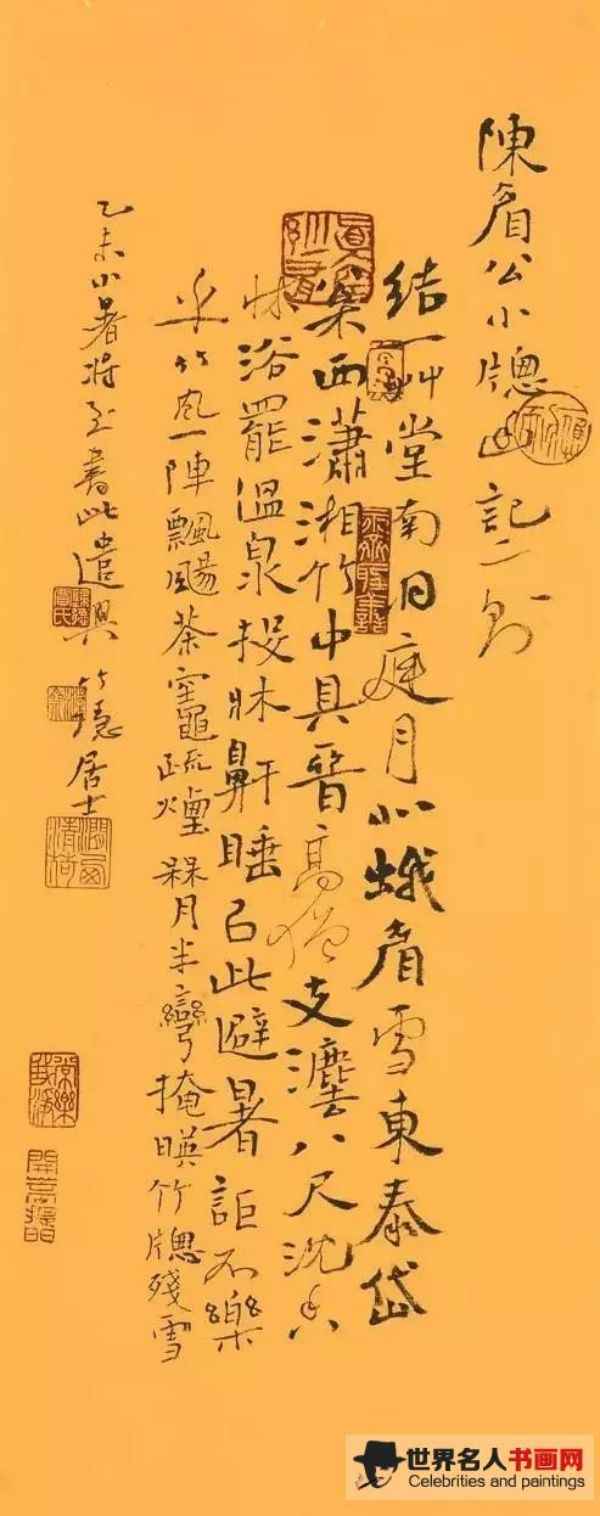 陳眉公小牕幽記二則
結一艸堂南洞庭月北蛾眉雪東泰岱
枀西瀟湘竹中具晉高僧支灋八尺沈香
牀浴罷溫泉投牀鼾睡㠯此避暑詎不樂
乎竹風一陣飄颺茶竈疏煙槑月半彎掩暎竹牕殘雪
乙未小暑將至書此遣興竹隱居士
世界名人书画网
Celebrities and paintings